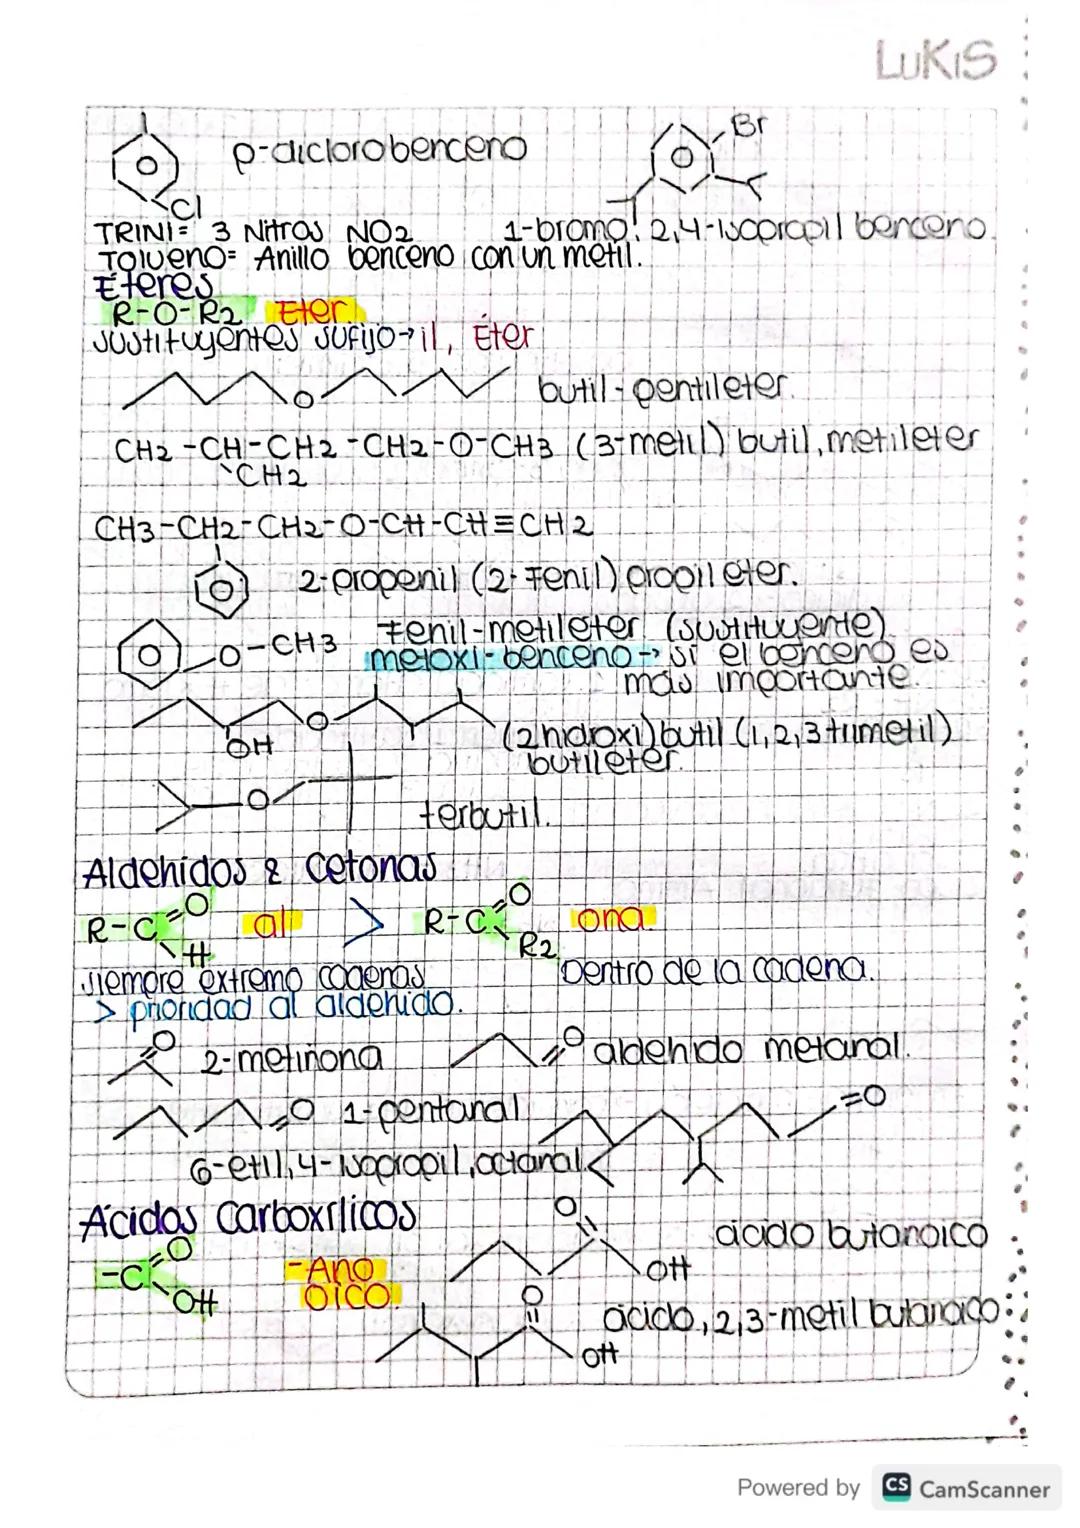 LUKIS
p-diclorobenceno
Br
Cl
TRINI= 3 Nitros NO2 1-bromo! 2,4-isopropil benceno.
Tolueno= Anillo benceno con un metil.
Éteres
R-O-R2 Eter.
sustituyentes sufijo→il, Éter
O butil-pentileter.
CH2-CH-CH2-CH2-O-CH3 (3-metil) butil, metileter
CH2
CH3-CH2-CH2-O-CH-CH≡CH2
2-propenil (2-Fenil) propil eter.
O-CH3 Fenil-metileter (sustituyente)
metoxi-benceno→ si el benceno es
más importante.
O
OH (2hidroxi) butil (1,2,3 trimetil)
butileter.
O
terbutil.
Aldehidos & Cetonas
R-C=O H al > R-C=O R2 ona
siempre extremo cadenas Dentro de la cadena.
> prioridad al aldehido.
O 2-metinona O aldehido metanal.
O 1-pentanal =O
6-etil, 4-isopropil, octanal
Ácidos Carboxílicos
-C=O OH -Ano
OICO.
O OH ácido butanoico
O OH ácido, 2,3-metil butanoico
Powered by CS CamScanner